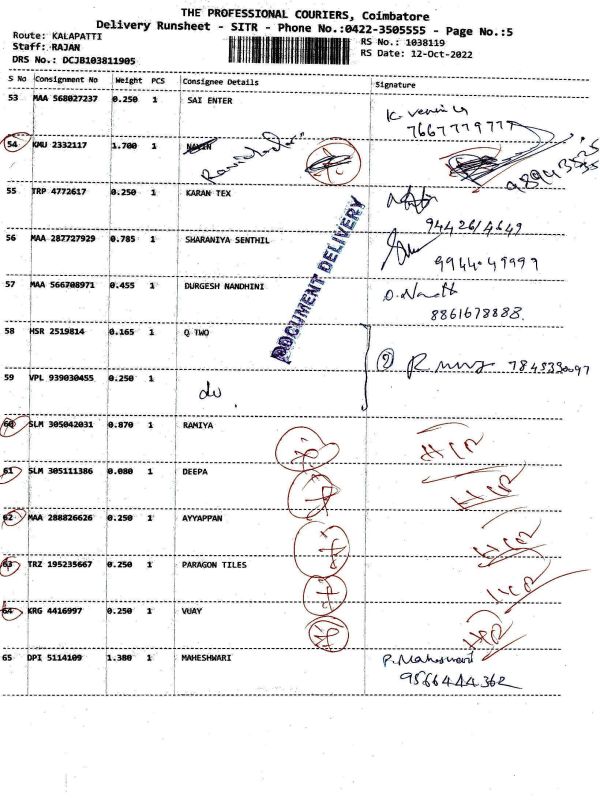 THE PROFESSIONAL COURIERS, Coimbatore
Delivery Runsheet - SITR - Phone No.:0422-3505555 - Page No.:5
Route: KALAPATTI
Staff: RAJAN
DRS No.: DCJB103811905
RS No.: 1038119
RS Date: 12-Oct-2022
S No Consignment No Weight PCS Consignee Details Signature
53 MAA 568027237 0.250 1 SAI ENTER
7667779777
54 KMU 2332117 1.700 1 NAVIN
55 TRP 4772617 0.250 1 KARAN TEX
9442614649
56 MAA 287727929 0.785 1 SHARANIYA SENTHIL
9944049999
57 MAA 566708971 0.455 1 DURGESH NANDHINI
8861678888
DOCUMENT DELIVERY
58 HSR 2519814 0.165 1 Q TWO
59 VPL 939030455 0.250 1
do
60 SLM 305042031 0.870 1 RAMIYA HCR
61 SLM 305111386 0.080 1 DEEPA HCR
62 MAA 288826626 0.250 1 AYYAPPAN HCR
63 TRZ 195235667 0.250 1 PARAGON TILES HCR
64 KRG 4416997 0.250 1 VIJAY HCR
65 DPI 5114109 1.380 1 MAHESHWARI P. Maheswari
9566444362